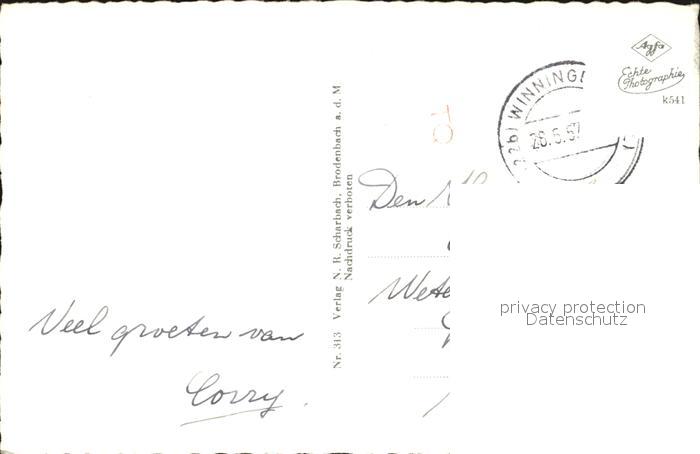 Veel groeten van
Corry.
Nr. 313 Verlag N. R. Scharbach, Brodenbach a. d. M
Nachdruck verboten
TO
(22b) WINNINGE
26.6.57
Agfa
Echte
Photographie
k541
Den
Wete
privacy protection
Datenschutz